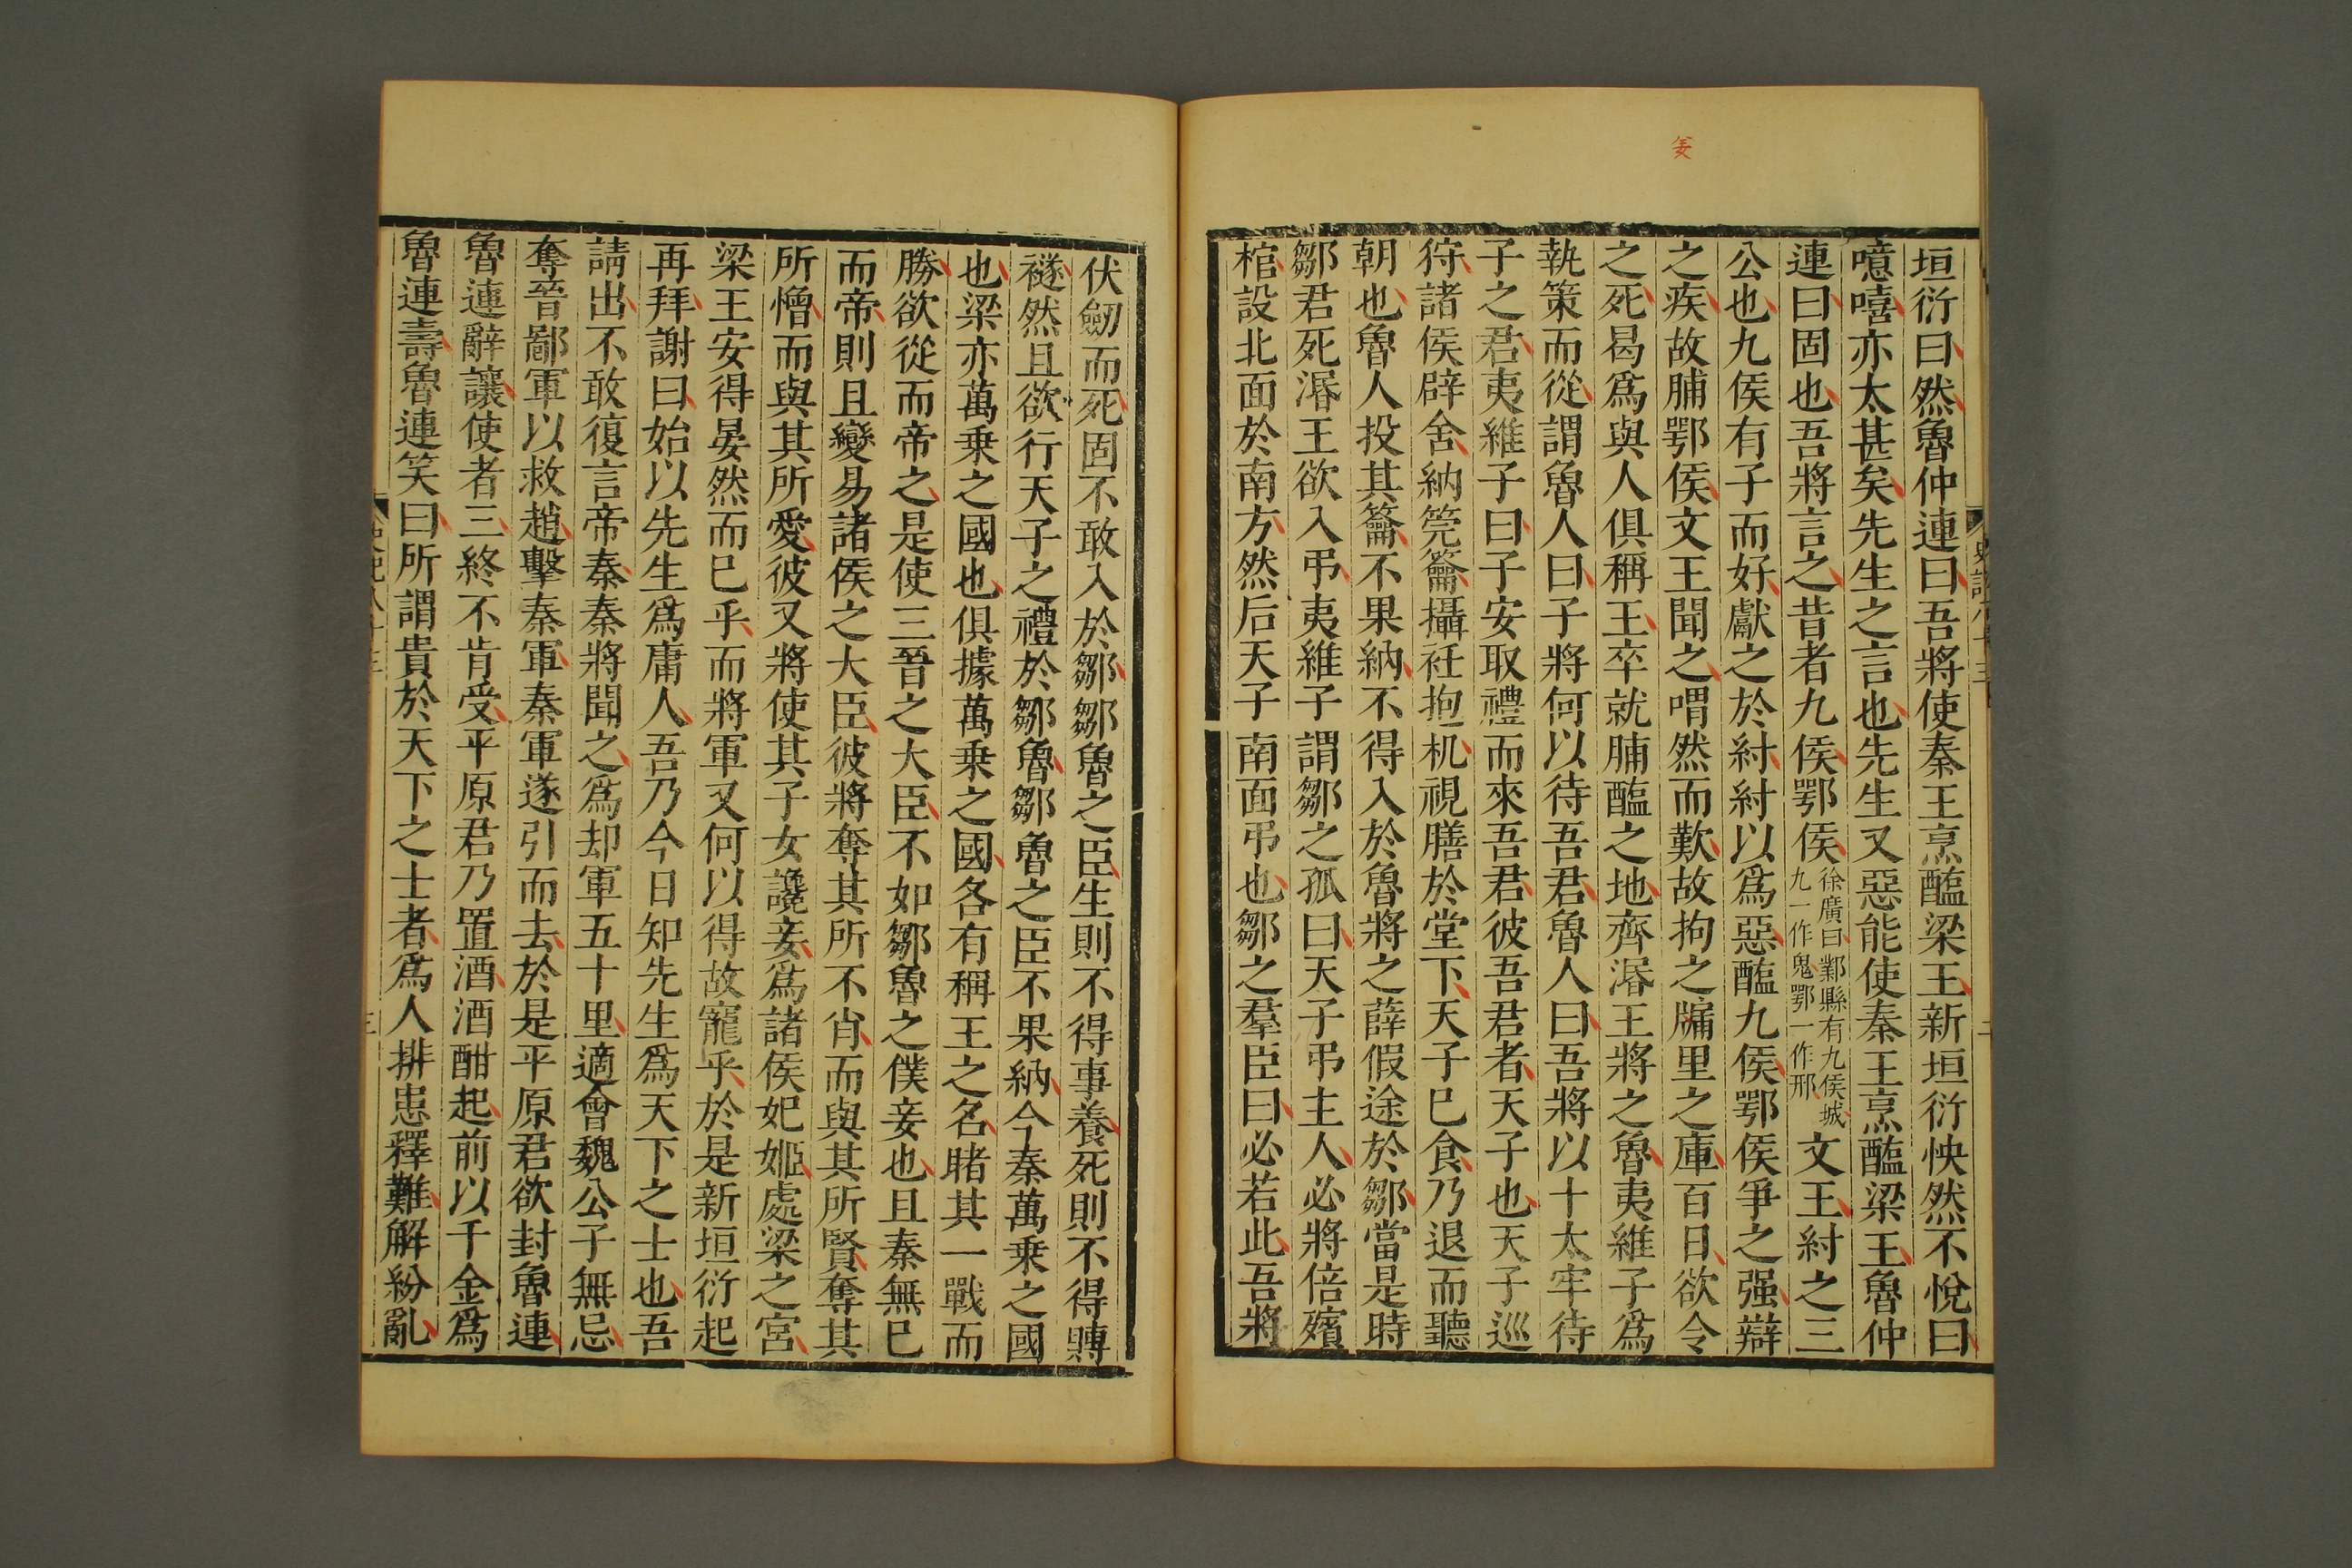 垣衍曰然魯仲連曰吾將使秦王烹醢梁王新垣衍怏然不悅曰
噫嘻亦太甚矣先生之言也先生又惡能使秦王烹醢梁王魯仲
連曰固也吾將言之昔者九侯鄂侯徐廣曰鄴縣有九侯城九一作鬼鄂一作邢文王紂之三
公也九侯有子而好獻之於紂紂以爲惡醢九侯鄂侯爭之强辯
之疾故脯鄂侯文王聞之喟然而歎故拘之牖里之庫百日欲令
之死曷爲與人俱稱王卒就脯醢之地齊湣王將之魯夷維子爲
執策而從謂魯人曰子將何以待吾君魯人曰吾將以十太牢待
子之君夷維子曰子安取禮而來吾君彼吾君者天子也天子巡
狩諸侯辟舍納筦籥攝衽抱机視膳於堂下天子已食乃退而聽
朝也魯人投其籥不果納不得入於魯將之薛假途於鄒當是時
鄒君死湣王欲入弔夷維子謂鄒之孤曰天子弔主人必將倍殯
棺設北面於南方然后天子南面弔也鄒之羣臣曰必若此吾將
伏劒而死固不敢入於鄒鄒魯之臣生則不得事養死則不得賻
襚然且欲行天子之禮於鄒魯鄒魯之臣不果納今秦萬乗之國
也梁亦萬乗之國也俱據萬乗之國各有稱王之名睹其一戰而
勝欲從而帝之是使三晉之大臣不如鄒魯之僕妾也且秦無已
而帝則且變易諸侯之大臣彼將奪其所不肖而與其所賢奪其
所憎而與其所愛彼又將使其子女讒妾爲諸侯妃姬處梁之宮
梁王安得晏然而已乎而將軍又何以得故寵乎於是新垣衍起
再拜謝曰始以先生爲庸人吾乃今日知先生爲天下之士也吾
請出不敢復言帝秦秦將聞之爲却軍五十里適會魏公子無忌
奪晉鄙軍以救趙擊秦軍秦軍遂引而去於是平原君欲封魯連
魯連辭讓使者三終不肯受平原君乃置酒酒酣起前以千金爲
魯連壽魯連笑曰所謂貴於天下之士者爲人排患釋難解紛亂